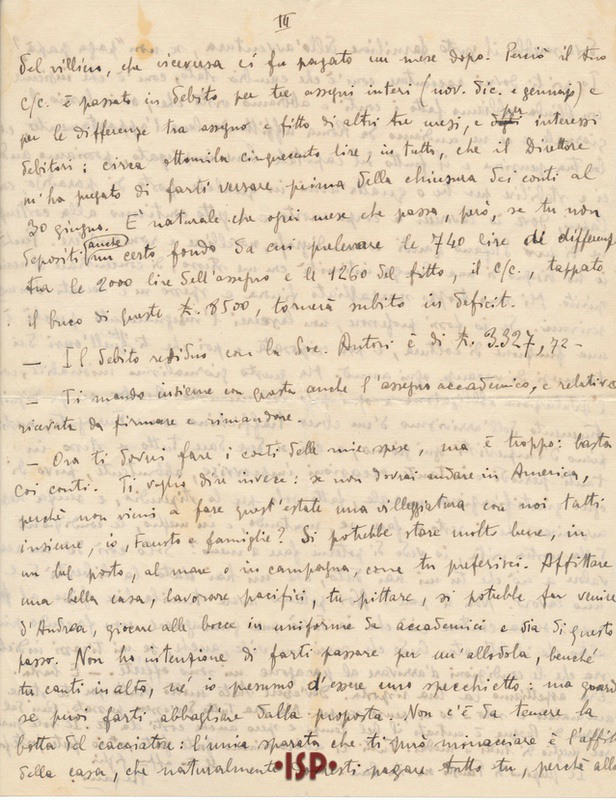 III
del villino, che viceversa ci fu pagato un mese dopo. Perciò il tuo
c/c. è passato in debito per tre assegni interi (nov. dic. e gennajo) e
per le differenze tra assegno e fitto di altri tre mesi, e per interessi
debitori: circa ottomila cinquecento lire, in tutto, che il Direttore
m'ha pregato di farti versare prima della chiusura dei conti al
30 giugno. E' naturale che ogni mese che passa, però, se tu non
depositi anche un certo fondo da cui prelevare le 740 lire di differenza
tra le 2000 lire dell'assegno e le 1260 del fitto, il c/c., tappato
il buco di queste £. 8500, tornerà subito in deficit.
— Il debito residuo con la Soc. Autori è di £. 3.327,72 –
— Ti mando insieme con questa anche l'assegno accademico, e relativa
ricevuta da firmare e rimandare.
— Ora ti dovrei fare i conti delle mie spese, ma è troppo: basta
coi conti. Ti voglio dire invece: se non dovrai andare in America,
perchè non vieni a fare quest'estate una villeggiatura con noi tutti
insieme, io, Fausto e famiglie? Si potrebbe stare molto bene, in
un bel posto, al mare o in campagna, come tu preferisci. Affittare
una bella casa, lavorare pacifici, tu pittare, si potrebbe far venire
d'Andrea, giocare alle bocce in uniforme da accademici e via di questo
passo. Non ho intenzione di farti passare per un'allodola, benchè
tu canti in alto, nè io presumo d'essere uno specchietto: ma guarda
se puoi farti abbagliare dalla proposta. Non c'è da temere la
botta del cacciatore: l'unica sparata che ti può minacciare è l'affitto
della casa, che naturalmente dovresti pagare tutto tu, perchè allo
•ISP•